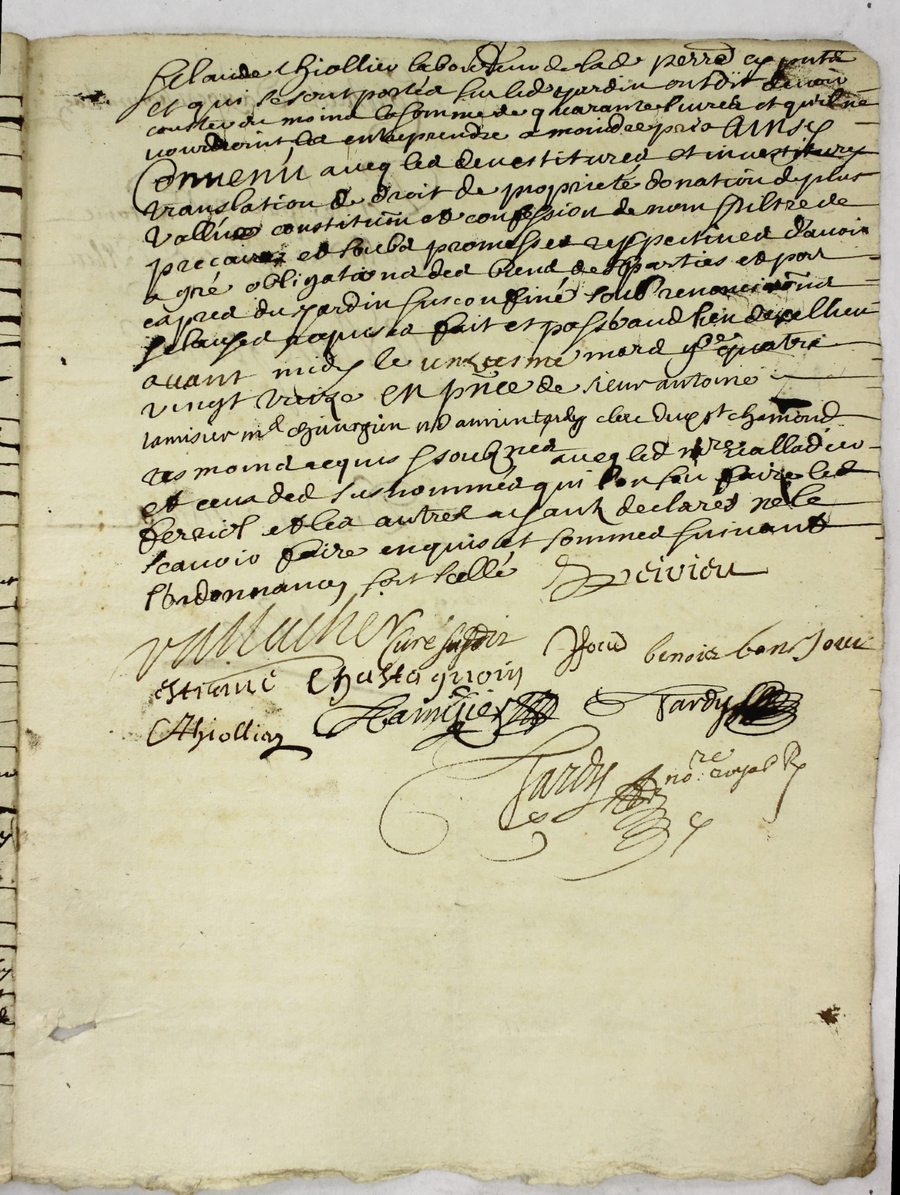 Claude Thiollier laboureur de lad perre
et qui se sont portés sur led Jardin ont dit devoir
couster du moins la somme de quarante livres et quil ne
voudroint entreprendre a moindre prix Ainsy
Convenu avec les devestitures et investitures
translation de droit de proprieté donation de plus
vallue constitution et confession de nom tiltre de
precaire et soubs promesses respectives d'avoir
a gré obligations des biens desd parties et par
expres du Jardin sus confiné soub renonciations
clauses requises fait et passé aud lieu de
avant midy le unziesme mars quatre
vingt treize En pnce de sieur antoine
ramisier me chirurgien clerc du st chamond
tesmoins requis soubsignés avec led
et ceux des susnommés qui l'on sçeu faire led
ferriol et les autres ayant declarés ne le
scavoir faire enquis et sommes suivant
l'ordonnance soit scellé
curé susdit benoist bon
estienne Chastagnon
Thiollier Ramisier Tardy
Tardy no.re royal